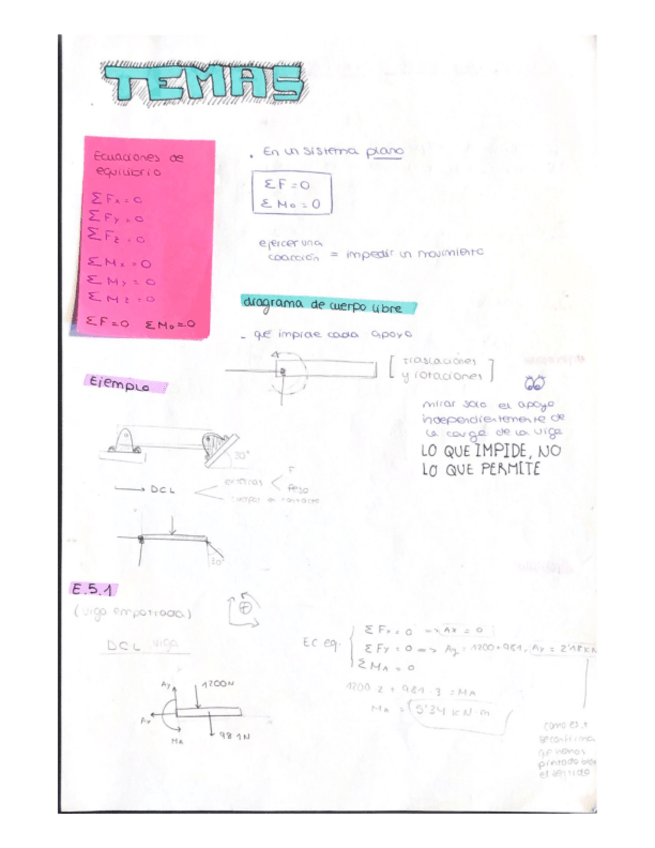 TEMAS
Ecuaciones de
equilibrio
ΣFx=0
ΣFy=0
ΣFz=0
ΣMx=0
ΣMy=0
ΣMz=0
ΣF=0 ΣMo=0
. En un sistema plano
ΣF=0
ΣMo=0
ejercer una
coacción = impedir un movimiento
diagrama de cuerpo libre
- qé impide cada apoyo
[ traslaciones
y rotaciones ]
mirar solo el apoyo
independientemente de
la carga de la viga
LO QUE IMPIDE, NO
LO QUE PERMITE
Ejemplo
30°
→ DCL
F
Peso
30°
E.5.1
(viga empotrada)
DCL viga
Ay
1200N
Ax
MA
981N
Ec eq.
ΣFx=0 → Ax=0
ΣFy=0 => Ay=1200+981, Ay=2'18KN
ΣMA=0
1200·2+981·3=MA
MA=5'34 kN·m
como es +
se confirma
qe hemos
pintado bien
el sentido